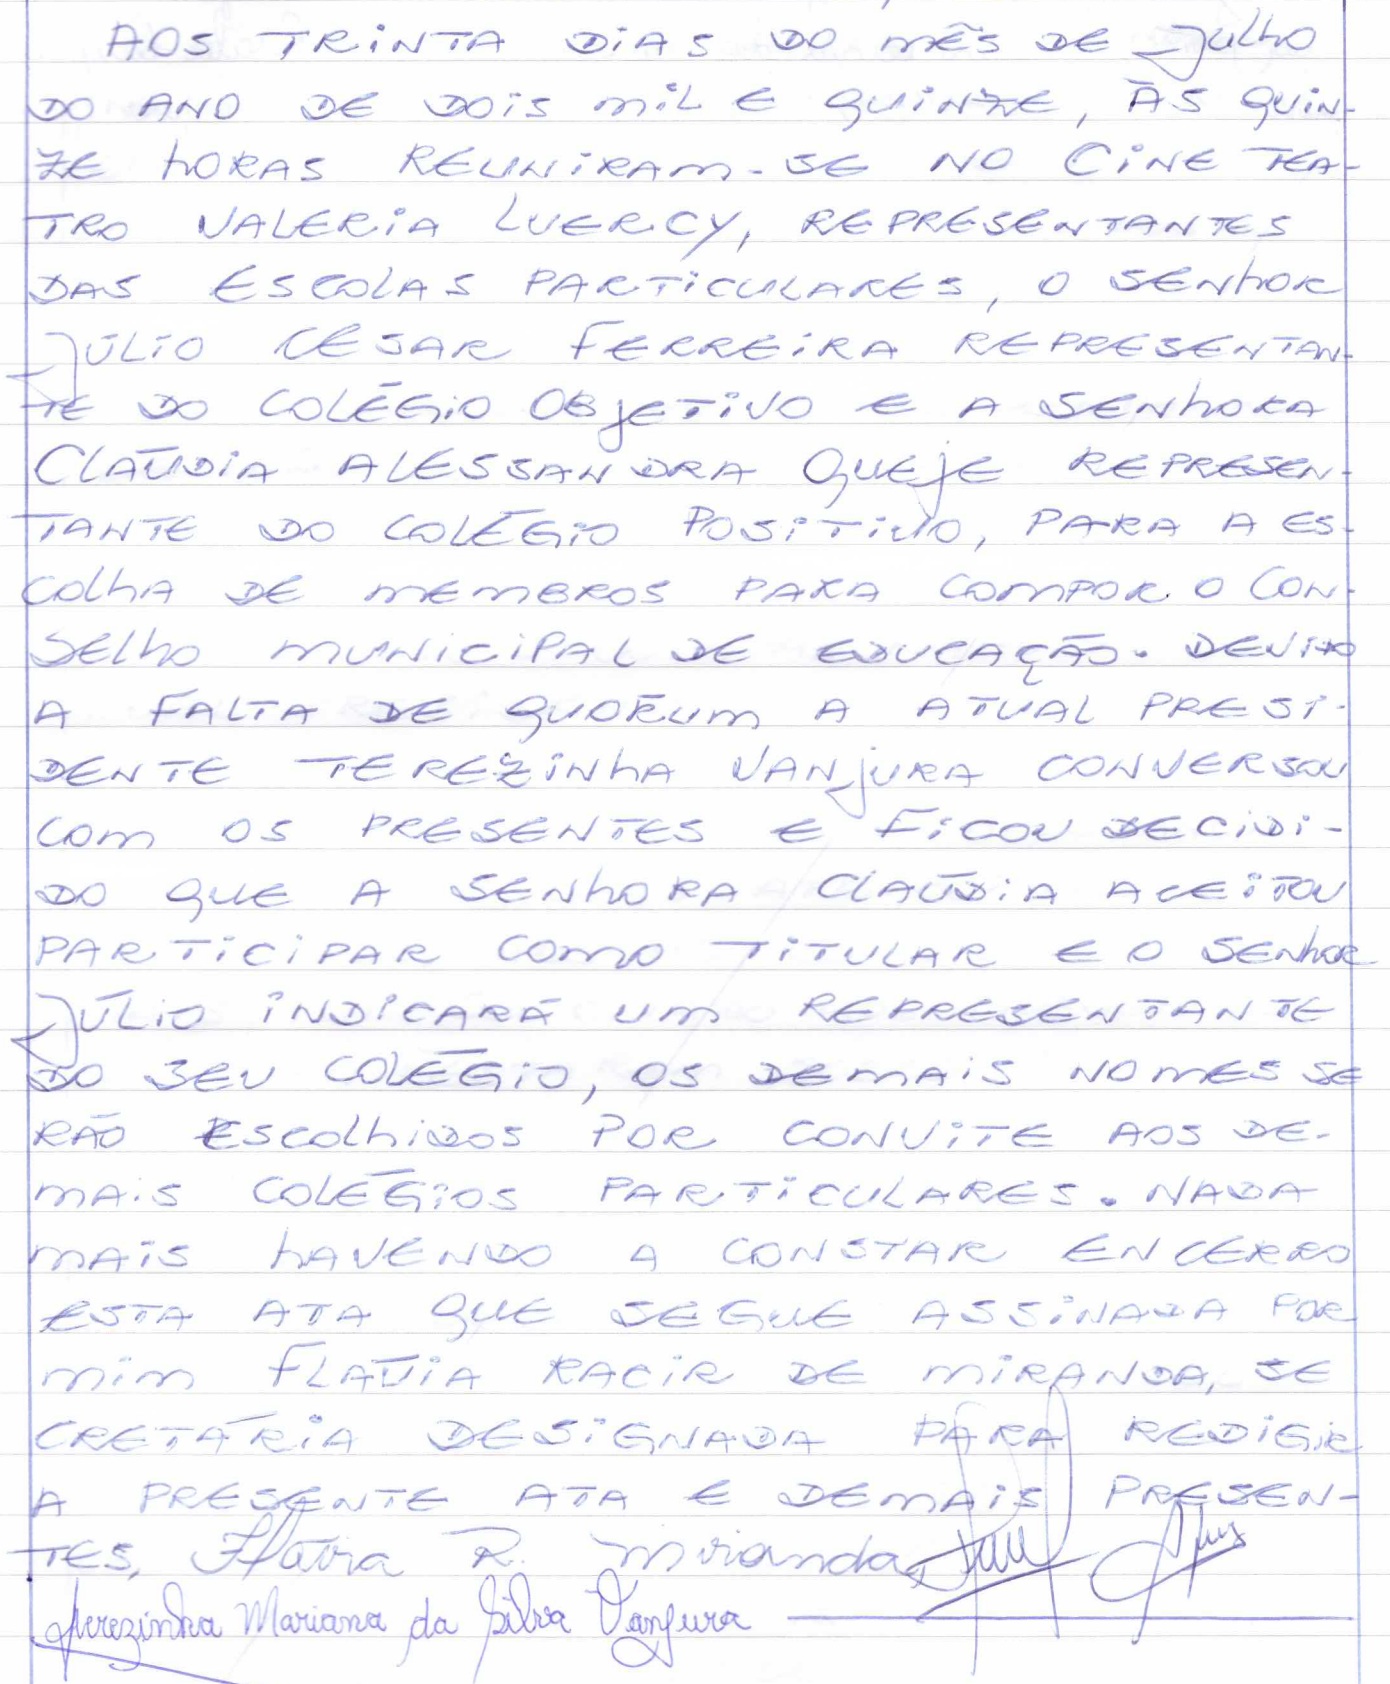 AOS TRINTA DIAS DO MÊS DE JULHO
DO ANO DE DOIS MIL E QUINZE, ÀS QUIN-
ZE HORAS REUNIRAM-SE NO CINE TEA-
TRO VALERIA LUERCY, REPRESENTANTES
DAS ESCOLAS PARTICULARES, O SENHOR
JÚLIO CESAR FERREIRA REPRESENTAN-
TE DO COLÉGIO OBJETIVO E A SENHORA
CLAÚDIA ALESSANDRA QUEJE REPRESEN-
TANTE DO COLÉGIO POSITIVO, PARA A ES-
COLHA DE MEMBROS PARA COMPOR O CON-
SELHO MUNICIPAL DE EDUCAÇÃO. DEVIDO
A FALTA DE QUÓRUM A ATUAL PRESI-
DENTE TEREZINHA VANJURA CONVERSOU
COM OS PRESENTES E FICOU DECIDI-
DO QUE A SENHORA CLAÚDIA ACEITOU
PARTICIPAR COMO TITULAR E O SENHOR
JÚLIO INDICARÁ UM REPRESENTANTE
DO SEU COLÉGIO, OS DEMAIS NOMES SE
RÃO ESCOLHIDOS POR CONVITE AOS DE-
MAIS COLÉGIOS PARTICULARES. NADA
MAIS HAVENDO A CONSTAR ENCERRO
ESTA ATA QUE SEGUE ASSINADA POR
MIM FLAVIA RACIR DE MIRANDA, SE
CRETÁRIA DESIGNADA PARA REDIGIR
A PRESENTE ATA E DEMAIS PRESEN-
TES, Flávia R. Miranda,
Terezinha Mariana da Silva Vanjura